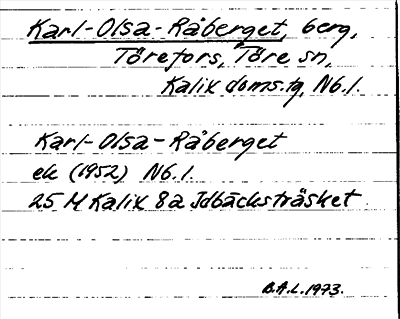 Karl-Olsa-Råberget, berg,
Törefors, Töre sn,
Kalix doms.tg, Nb.l.
Karl-Olsa-Råberget
ek (1952) Nb.l.
25 M Kalix 8a Idbäcksträsket
B.A.L. 1973.